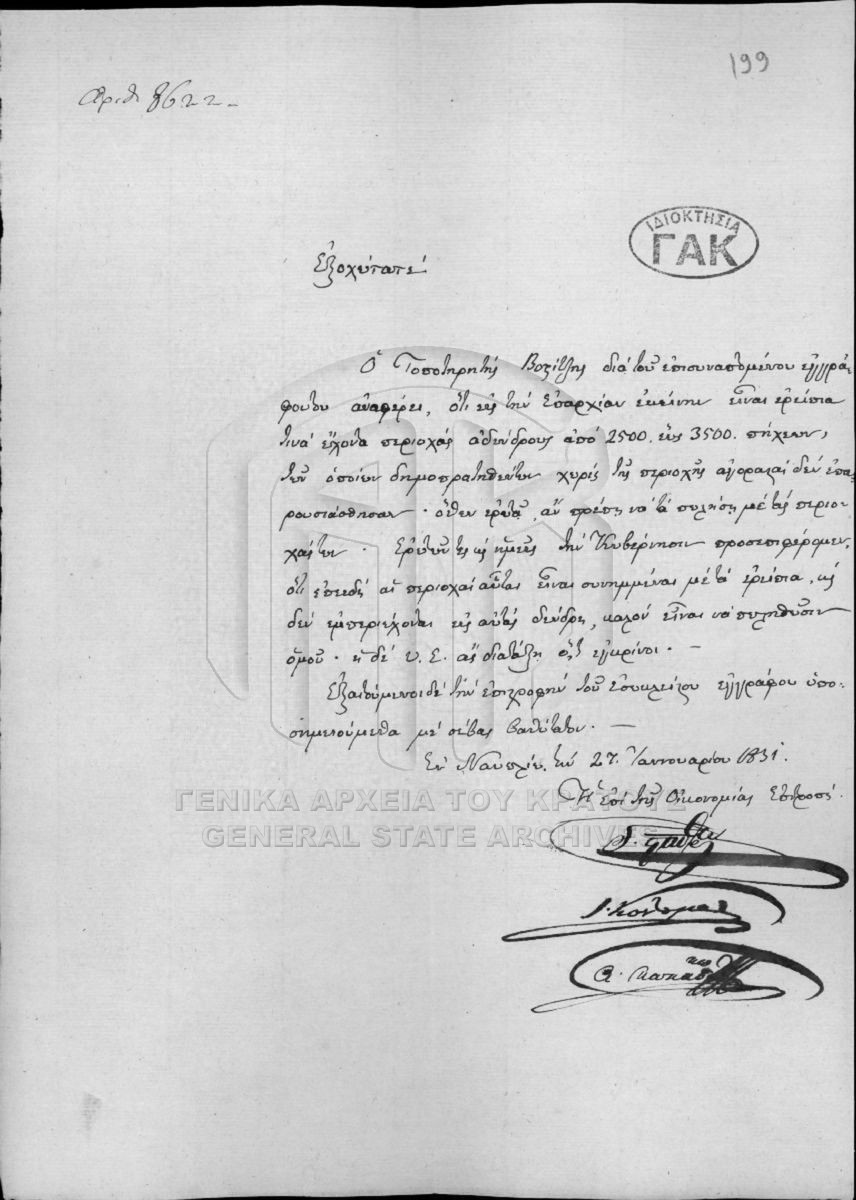 199
Αριθ 8622 –
ΙΔΙΟΚΤΗΣΙΑ
ΓΑΚ
Ἐξοχώτατε
Ὁ Τοποτηρητής Βοστίτζης διά τοῦ ἐπισυναπτομένου ἐγγρά-
φου του ἀναφέρει, ὅτι εἰς τήν Ἐπαρχίαν ἐκείνην εἶναι ἐρείπια
τινά ἔχοντα περιοχάς ἀδένδρους ἀπό 2500. ἕως 3500. πήχεων,
τῶν ὁποίων δημοπρατηθέντων χωρίς τῆς περιοχῆς ἀγορασταί δέν ἐπα-
ρουσιάσθησαν · ὅθεν ἐρωτᾷ, ἄν πρέπῃ νά τά πωλήσῃ μέ τάς περιο-
χάς των · Ἐρωτῶντες καί ἡμεῖς τήν Κυβέρνησιν προσεπιφέρομεν,
ὅτι ἐπειδή αἱ περιοχαί αὗται εἶναι συνημμέναι μέ τά ἐρείπια, καί
δέν ἐμπεριέχονται εἰς αὐτάς δένδρη, καλόν εἶναι νά πωληθῶσιν
ὁμοῦ · ἡ δέ Υ. Ε. ἄς διατάξῃ ὅ,τι ἐγκρίνει · –
Ἐξαιτούμενοι δέ τήν ἐπιστροφήν τοῦ ἐσωκλείστου ἐγγράφου ὑπο-
σημειούμεθα μέ σέβας βαθύτατον · –
Ἐν Ναυπλίῳ τήν 27. Ἰαννουαρίου 1831.
Ἡ ἐπί τῆς Οἰκονομίας Ἐπιτροπή.
ΓΕΝΙΚΑ ΑΡΧΕΙΑ ΤΟΥ ΚΡΑΤΟΥΣ
GENERAL STATE ARCHIVES
Α. Παπαδ